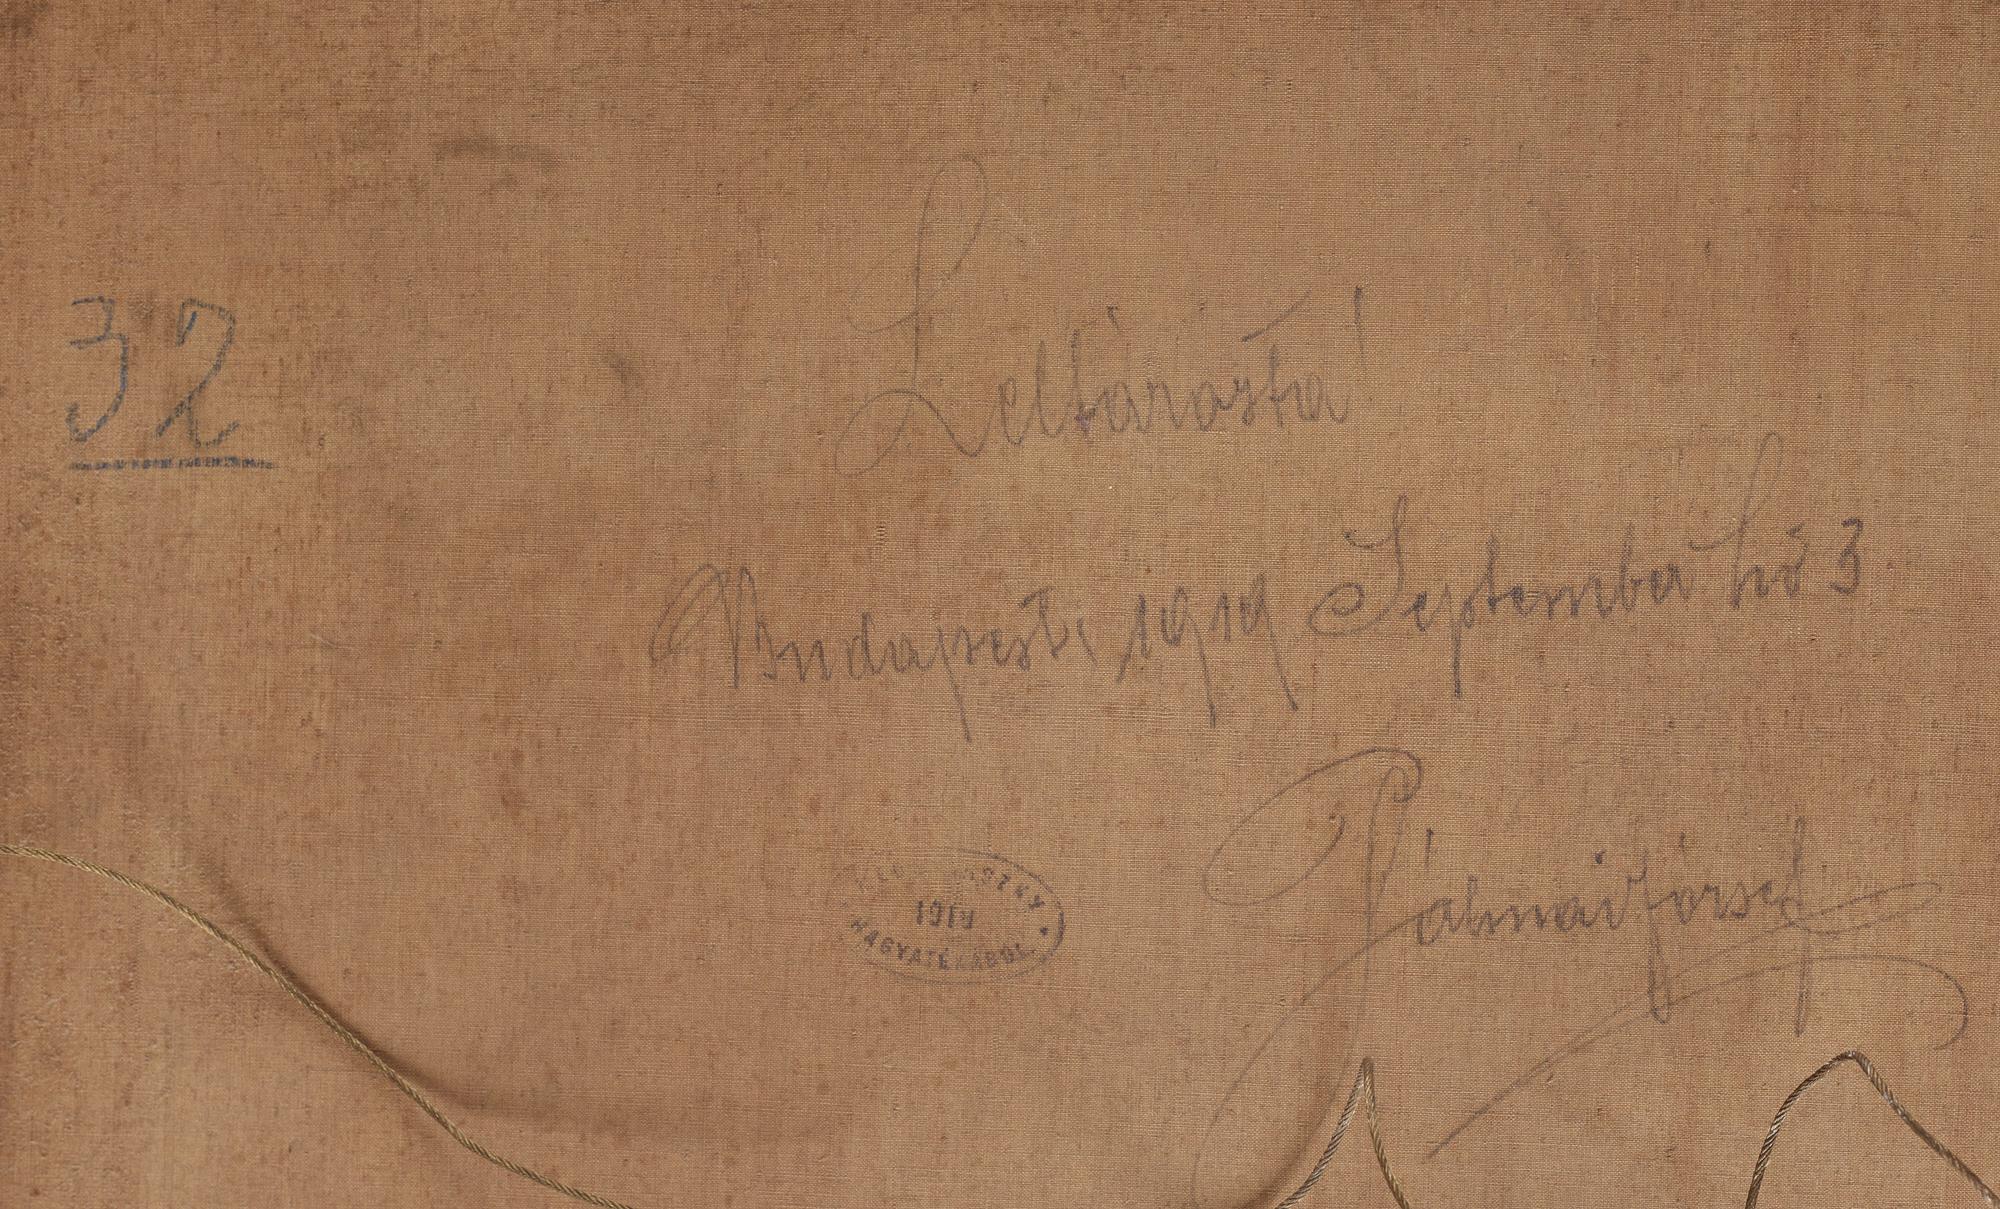 32
Leltározta!
Budapest, 1919 September hó 3
Pálmai József
1919
HAGYATÉKÁBÓL